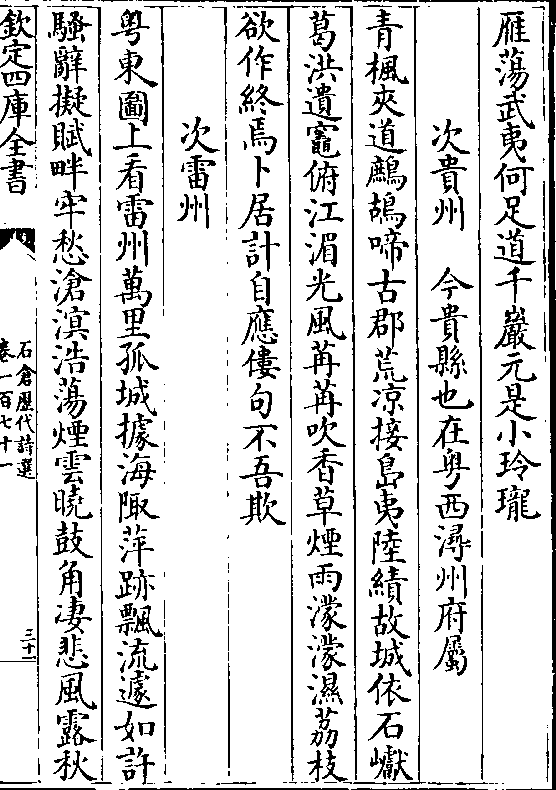 雁蕩武夷何足道千巖元是小玲瓏
次貴州　今貴縣也在粤西潯州府屬
青楓夾道鷓鴣啼古郡荒凉接島夷陸績故城依石巘
葛洪遺竈俯江湄光風苒苒吹香草煙雨濛濛濕荔枝
欲作終焉卜居計自應僂句不吾欺
次雷州
粤東圖上看雷州萬里孤城據海陬萍跡飄流遽如許
騷辭擬賦畔牢愁滄溟浩蕩煙雲曉鼓角凄悲風露秋
欽定四庫全書
石倉歷代詩選
卷一百七十一
三十一